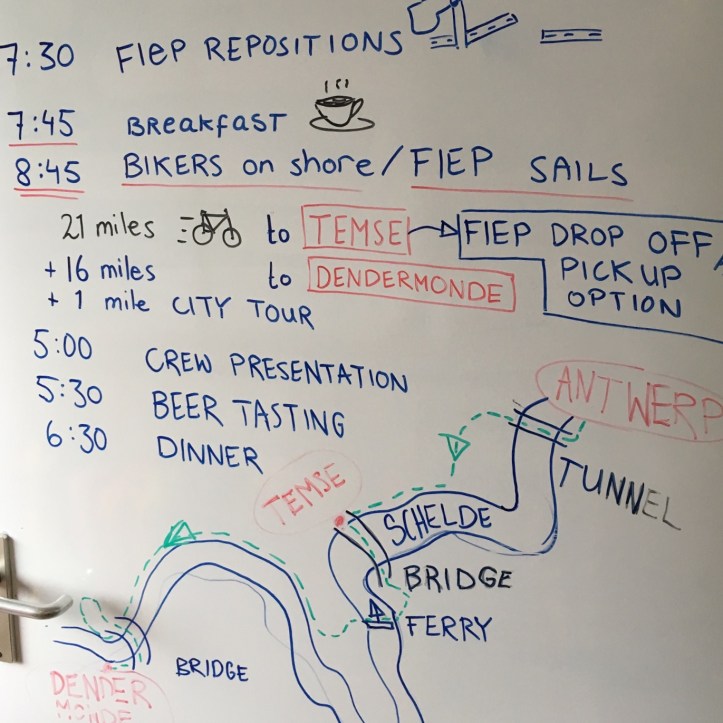 7:30 FIEP REPOSITIONS
7:45 BREAKFAST
8:45 BIKERS on shore / FIEP SAILS
21 miles to TEMSE FIEP DROP OFF/
PICK UP
OPTION
+ 16 miles to DENDERMONDE
+ 1 mile CITY TOUR
5:00 CREW PRESENTATION
5:30 BEER TASTING
6:30 DINNER
ANTWERP
TUNNEL
TEMSE
SCHELDE
BRIDGE
FERRY
BRIDGE
DENDER
MONDE